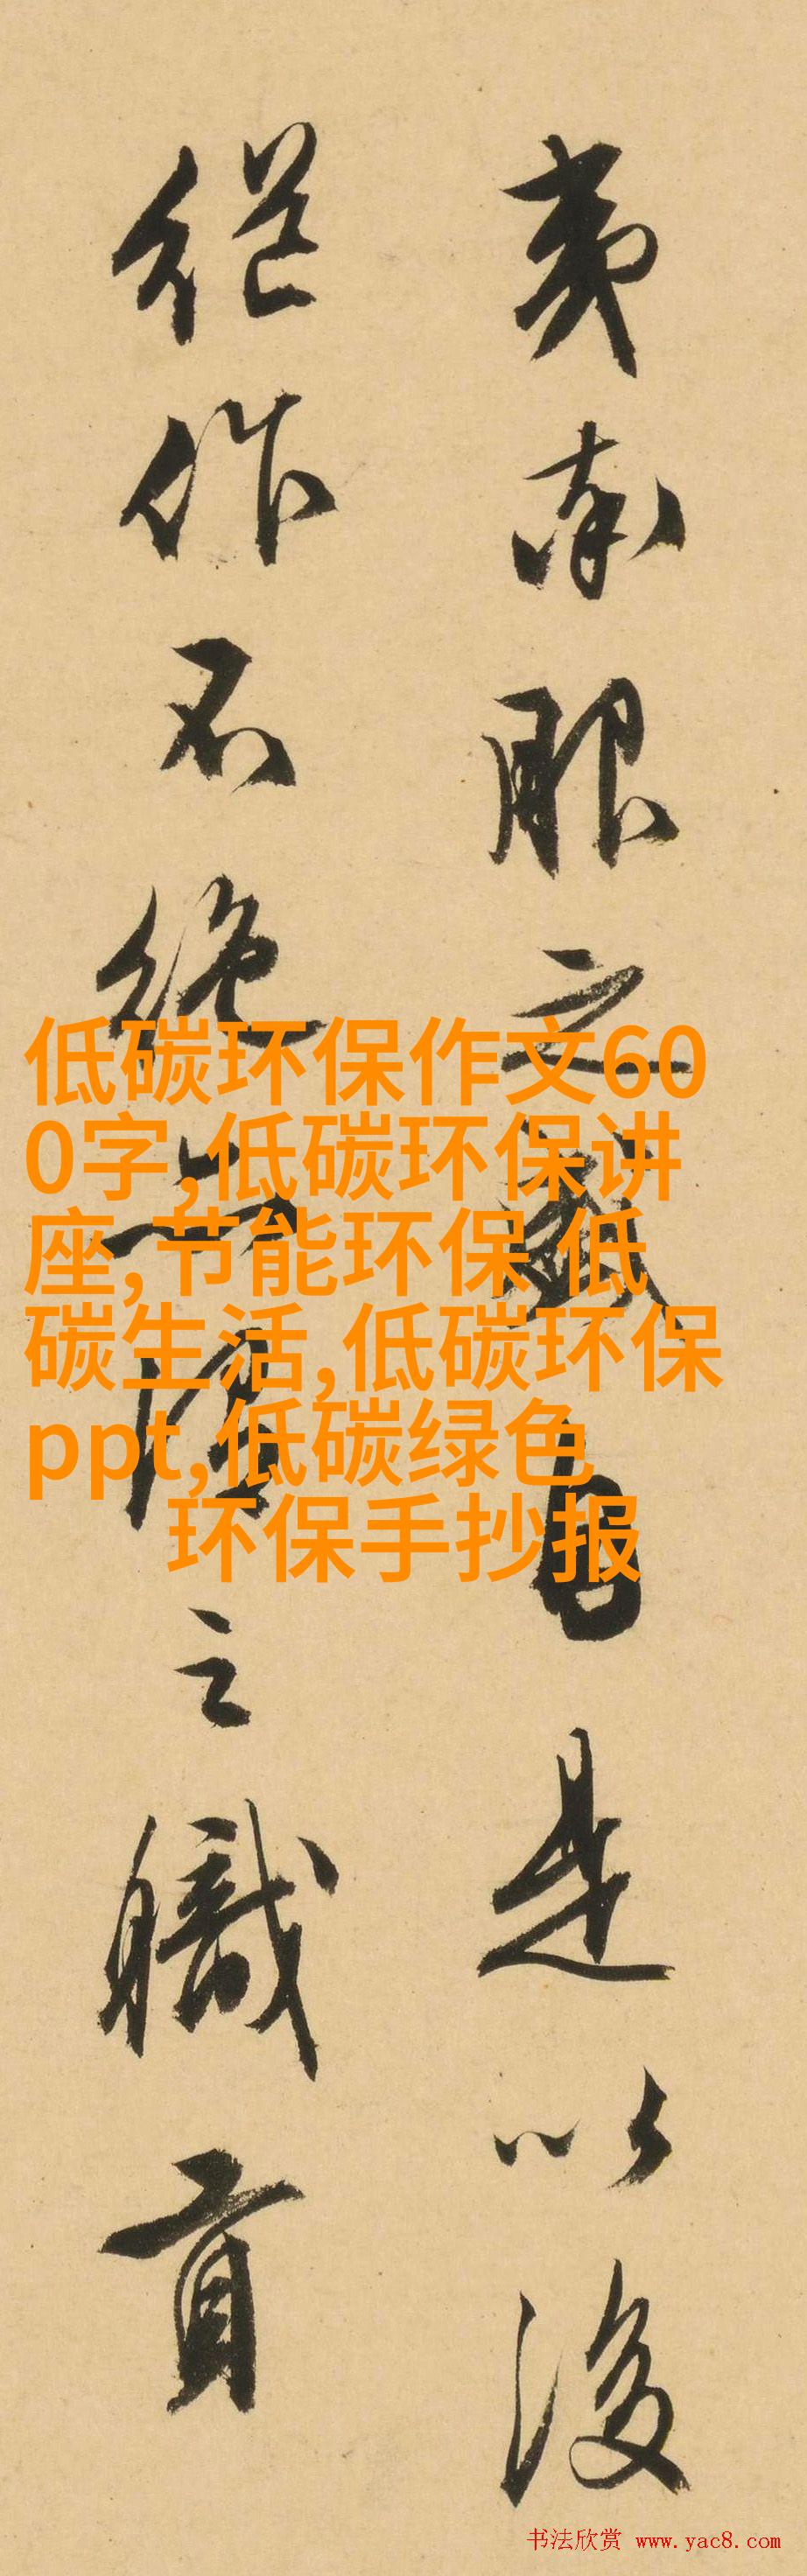 夷服之自是以後
作不絕之職貢
低碳环保作文60
0字,低碳环保讲
座,节能环保 低
碳生活,低碳环保
ppt,低碳绿色
环保手抄报
书法欣赏 www.yac8.com